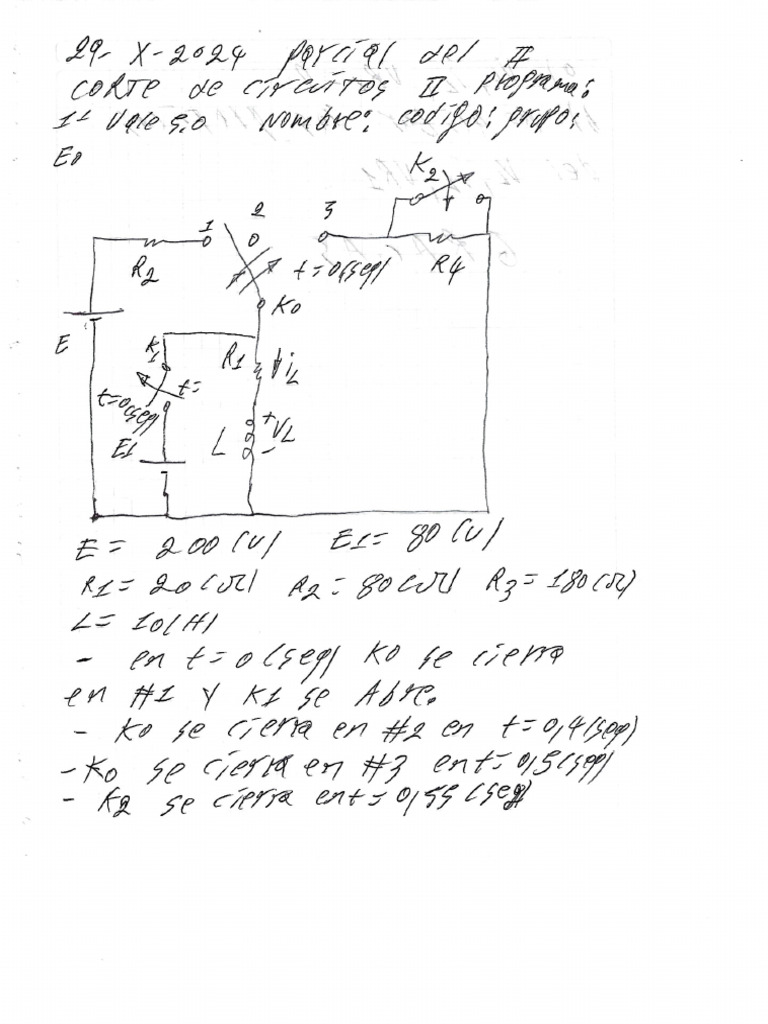 29-X-2024 parcial del II
CORTE de circuitos II programa:
1º Vale 5.0 Nombre: codigo: grupo:
E0
K2
1 2 3
R2 t=0(seg) R4
K0
E K1 R1 iL
t=0(seg) t=
+
E1 L VL
-
E = 200(V) E1= 80(V)
R1=20(Ω) R2=80(Ω) R3=180(Ω)
L= 10(H)
- en t=0(seg) K0 se cierra
en #1 y K1 se Abre.
- K0 se cierra en #2 en t=0,4(seg)
-K0 se cierra en #3 en t=0,5(seg)
- K2 se cierra en t=0,55(seg)